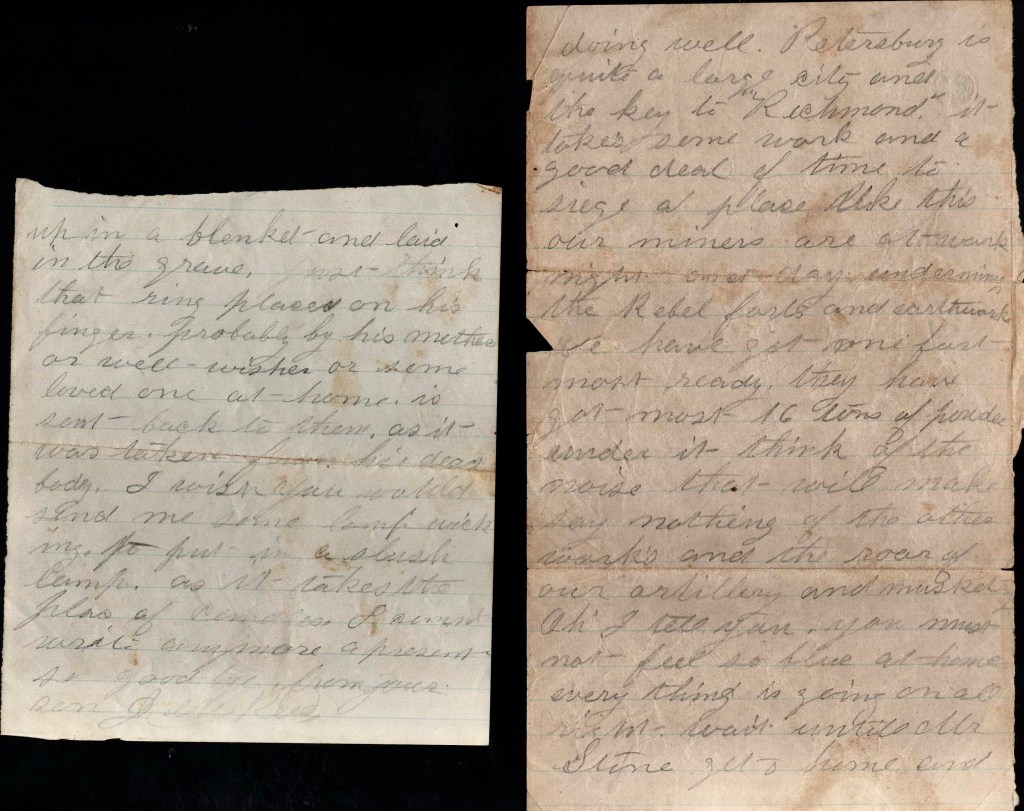 up in a blenket and laid
in the grave, just think
that ring places on his
finger. probably by his mother
or well-wisher or some
loved one at home. is
sent back to them, as it
was taken from his dead
body. I wish you would
send me some lamp wick
ing. to put in a slush
lamp. as it takes the
plac of candles. I
write anymore a present
so good bye. from your
son
doing well. Petersburg is
quite a large city and
the key to "Richmond." it
takes some work and a
good deal of time to
siege a place like this
our miners are at work
night and day undermin
the Rebel forts and earthwork
We have got one fort
most ready. they have
got most 16 tons of powder
under it think of the
noise that will make
say nothing of the other
works and the roar of
our artillery and musket
Oh I tell you. you must
not feel so blue at home
every thing is going on all
right. wait until Mr
Stone gets home and